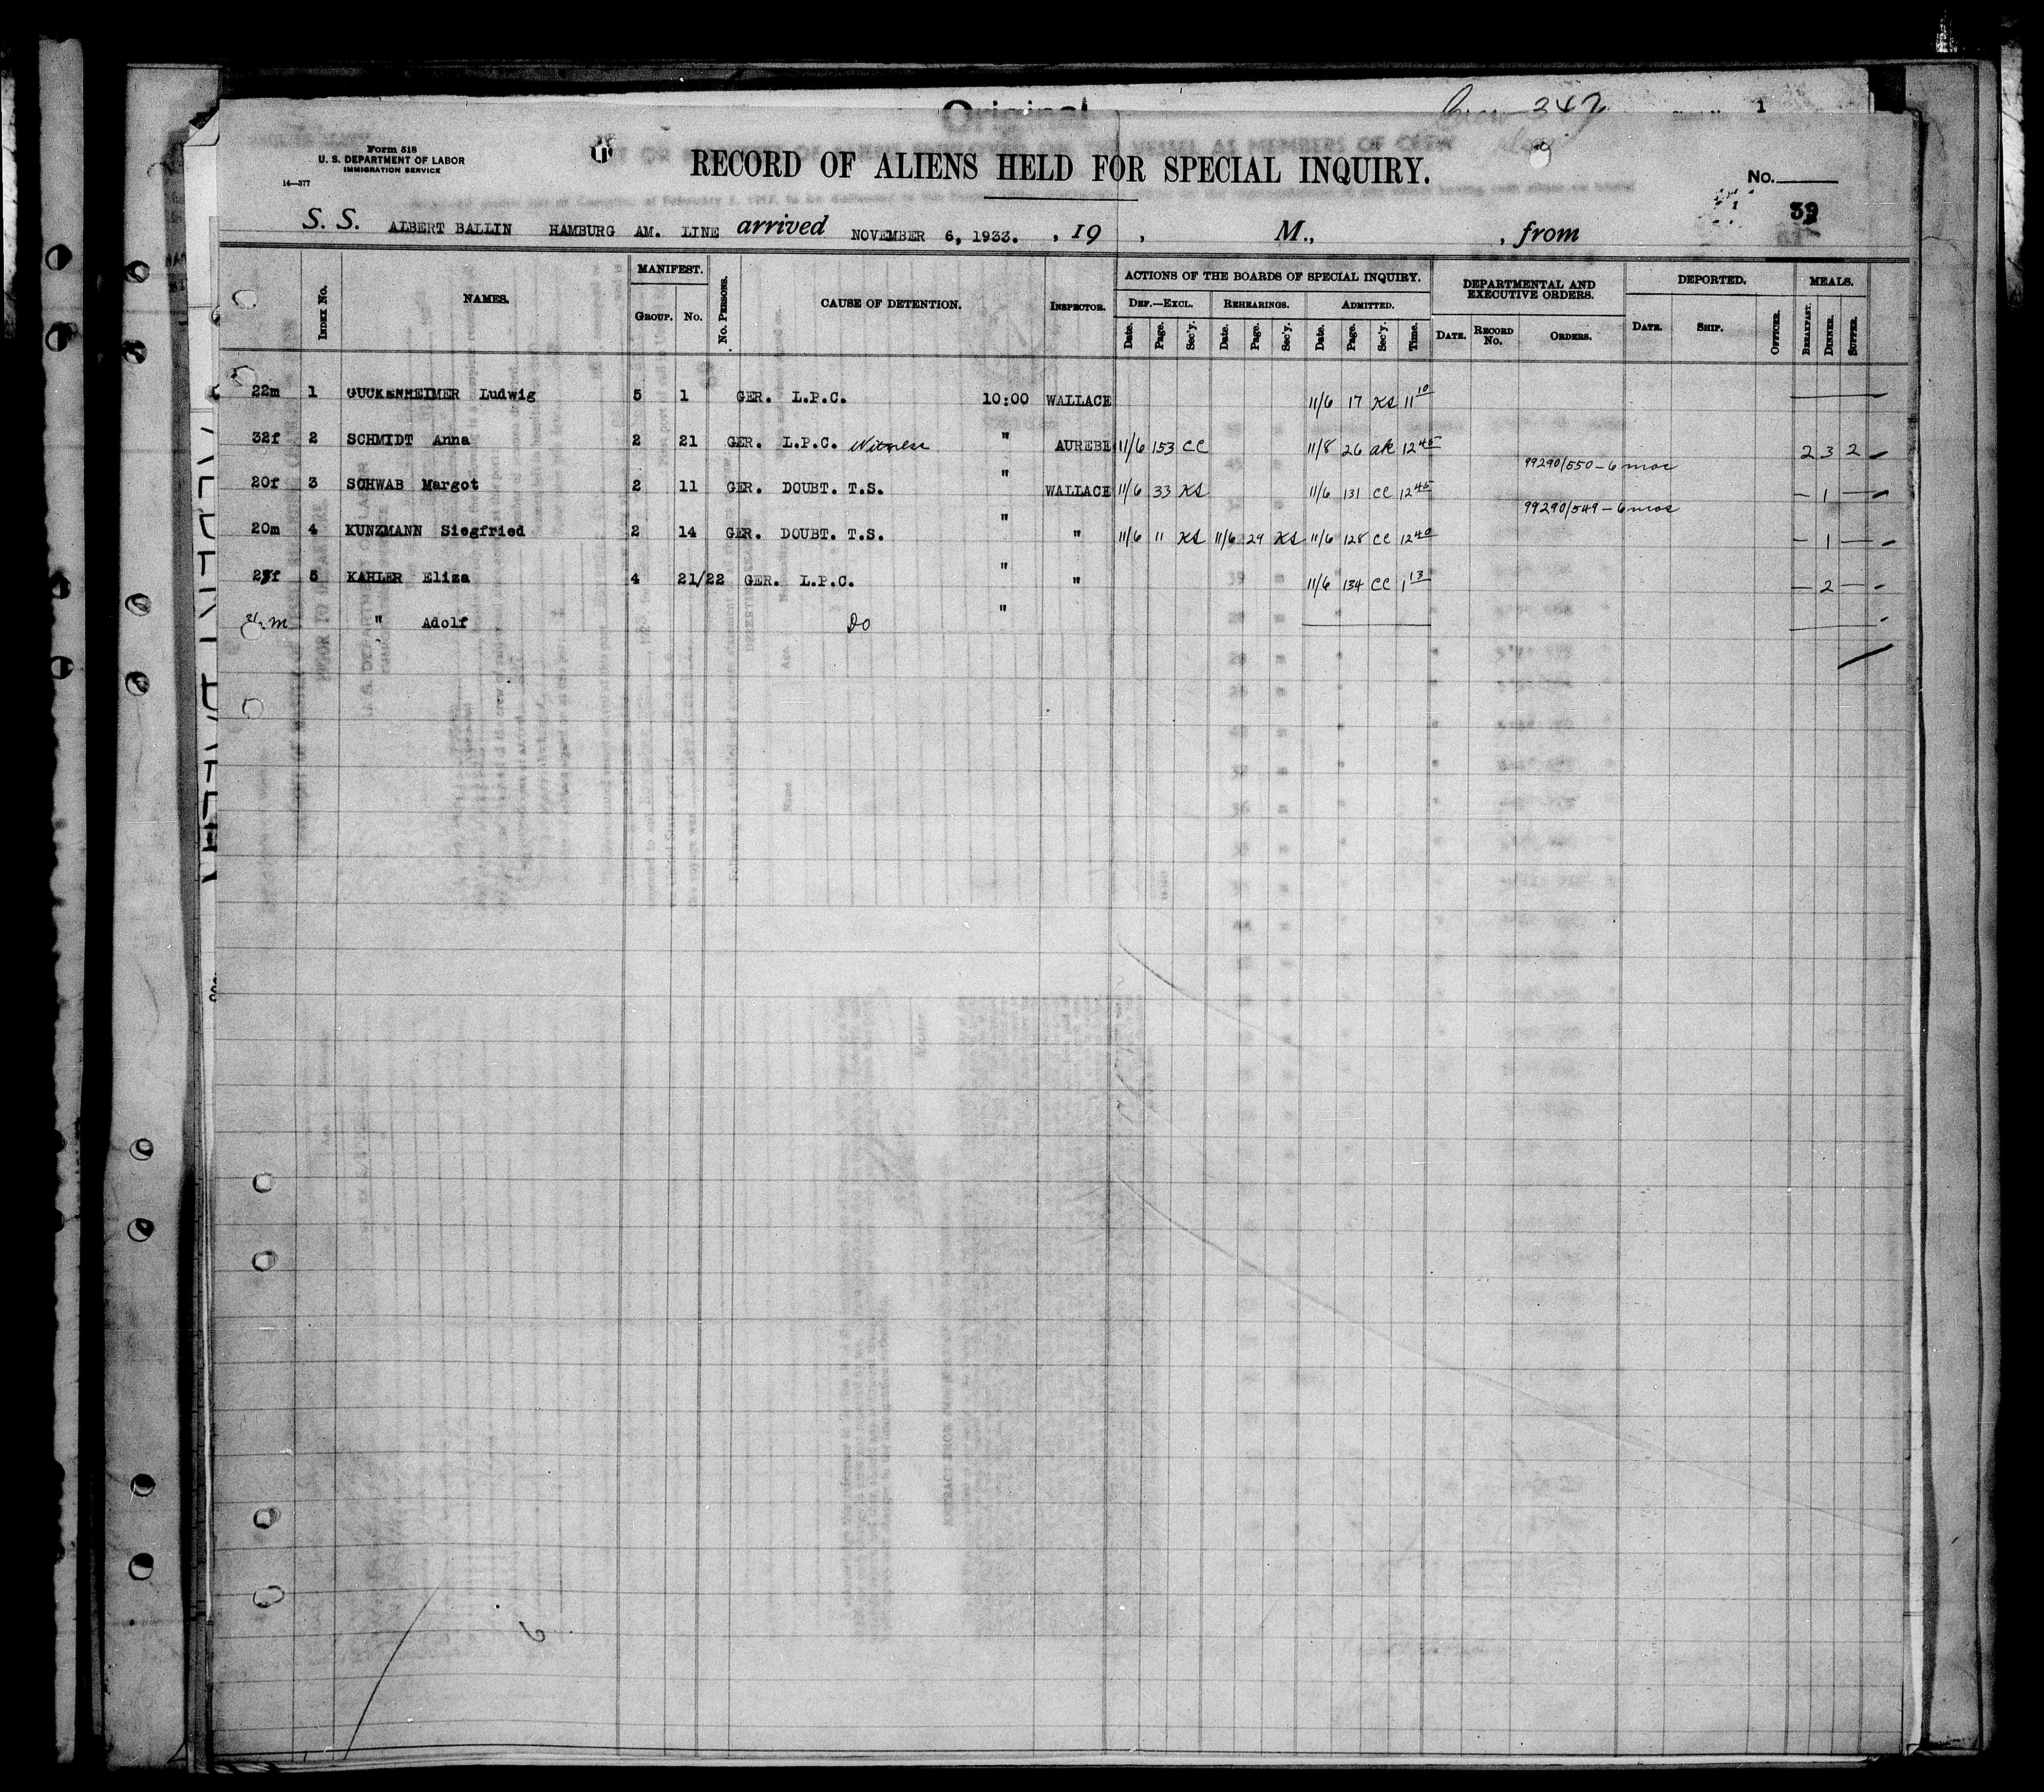 Original
242
1
Form 518
U. S. DEPARTMENT OF LABOR
IMMIGRATION SERVICE
14—377
RECORD OF ALIENS HELD FOR SPECIAL INQUIRY.
No.
39
S. S. ALBERT BALLIN HAMBURG AM. LINE arrived NOVEMBER 6, 1933. , 19 , M., , from
Index No. NAMES. MANIFEST. Group. No. No. Persons. CAUSE OF DETENTION. Inspector. ACTIONS OF THE BOARDS OF SPECIAL INQUIRY. DEPARTMENTAL AND EXECUTIVE ORDERS. DEPORTED. MEALS.
Def.—Excl. Rehearings. Admitted.
Date. Page. Sec'y. Date. Page. Sec'y. Date. Page. Sec'y. Time. Date. Record No. Orders. Date. Ship. Officer. Breakfast. Dinner. Supper.
22m 1 GUCKENHEIMER Ludwig 5 1 GER. L.P.C. 10:00 WALLACE 11/6 17 KS 11 10
32f 2 SCHMIDT Anna 2 21 GER. L.P.C. Witness " AUREBE 11/6 153 CC 11/8 26 aK 12 45 2 3 2 -
99290/550 - 6 mos
20f 3 SCHWAB Margot 2 11 GER. DOUBT. T.S. " WALLACE 11/6 33 KS 11/6 131 CC 12 45 - 1 - -
99290/549 - 6 mos
20m 4 KUNZMANN Siegfried 2 14 GER. DOUBT. T.S. " " 11/6 11 KS 11/6 29 KS 11/6 128 CC 12 40 - 1 - -
5 KAHLER Eliza 4 21/22 GER. L.P.C. " " 11/6 134 CC 1 13 - 2 - -
m " Adolf Do "